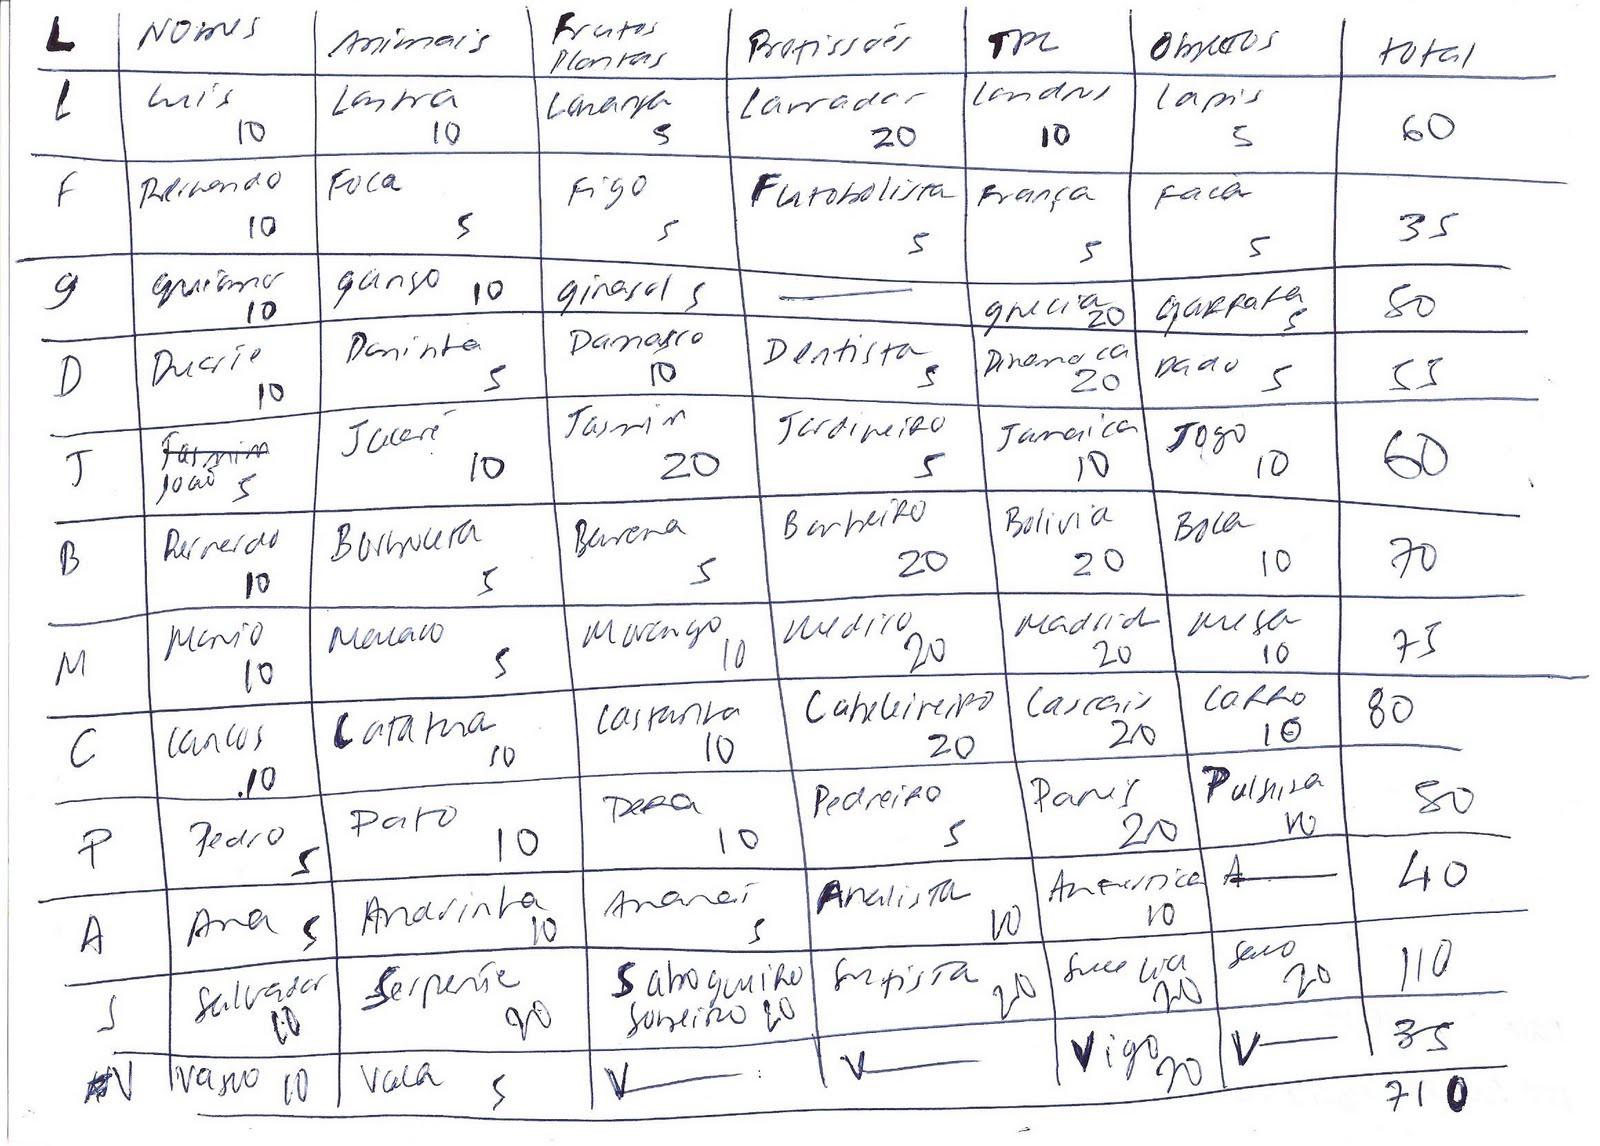 L Nomes Animais Frutos Plantas Profissões TPC Objetos total
L Luis 10 Lontra 10 Laranja 5 Lavrador 20 Londres 10 Lapis 5 60
F Fernando 10 Foca 5 Figo 5 Futobolista 5 França 5 Faca 5 35
g 10 ganso 10 girasol 5 — grecia 20 garrafa 5 50
D Duarte 10 Doninha 5 Damasco 10 Dentista 5 Dinamarca 20 Dado 5 55
J Jasmim João 5 Jacaré 10 Jasmin 20 Jardineiro 5 Jamaica 10 Jogo 10 60
B Bernardo 10 Borboleta 5 Banana 5 Barbeiro 20 Bolivia 20 Bola 10 70
M Mario 10 Macaco 5 Morango 10 Medico 20 Madrid 20 Mesa 10 75
C Carlos 10 Catatua 10 Castanha 10 Cabeleireiro 20 Cascais 20 Carro 10 80
P Pedro 5 Pato 10 Pera 10 Pedreiro 5 Paris 20 Pulseira 10 50
A Ana 5 Andorinha 10 Ananas 5 Analista 10 Antartica 10 A— 40
S Salvador 10 Serpente 20 Sabogueiro Sobreiro 20 Surfista 20 Suecia 20 Saco 20 110
V Vasco 10 Vaca 5 V— V— Vigo 20 V— 35
710